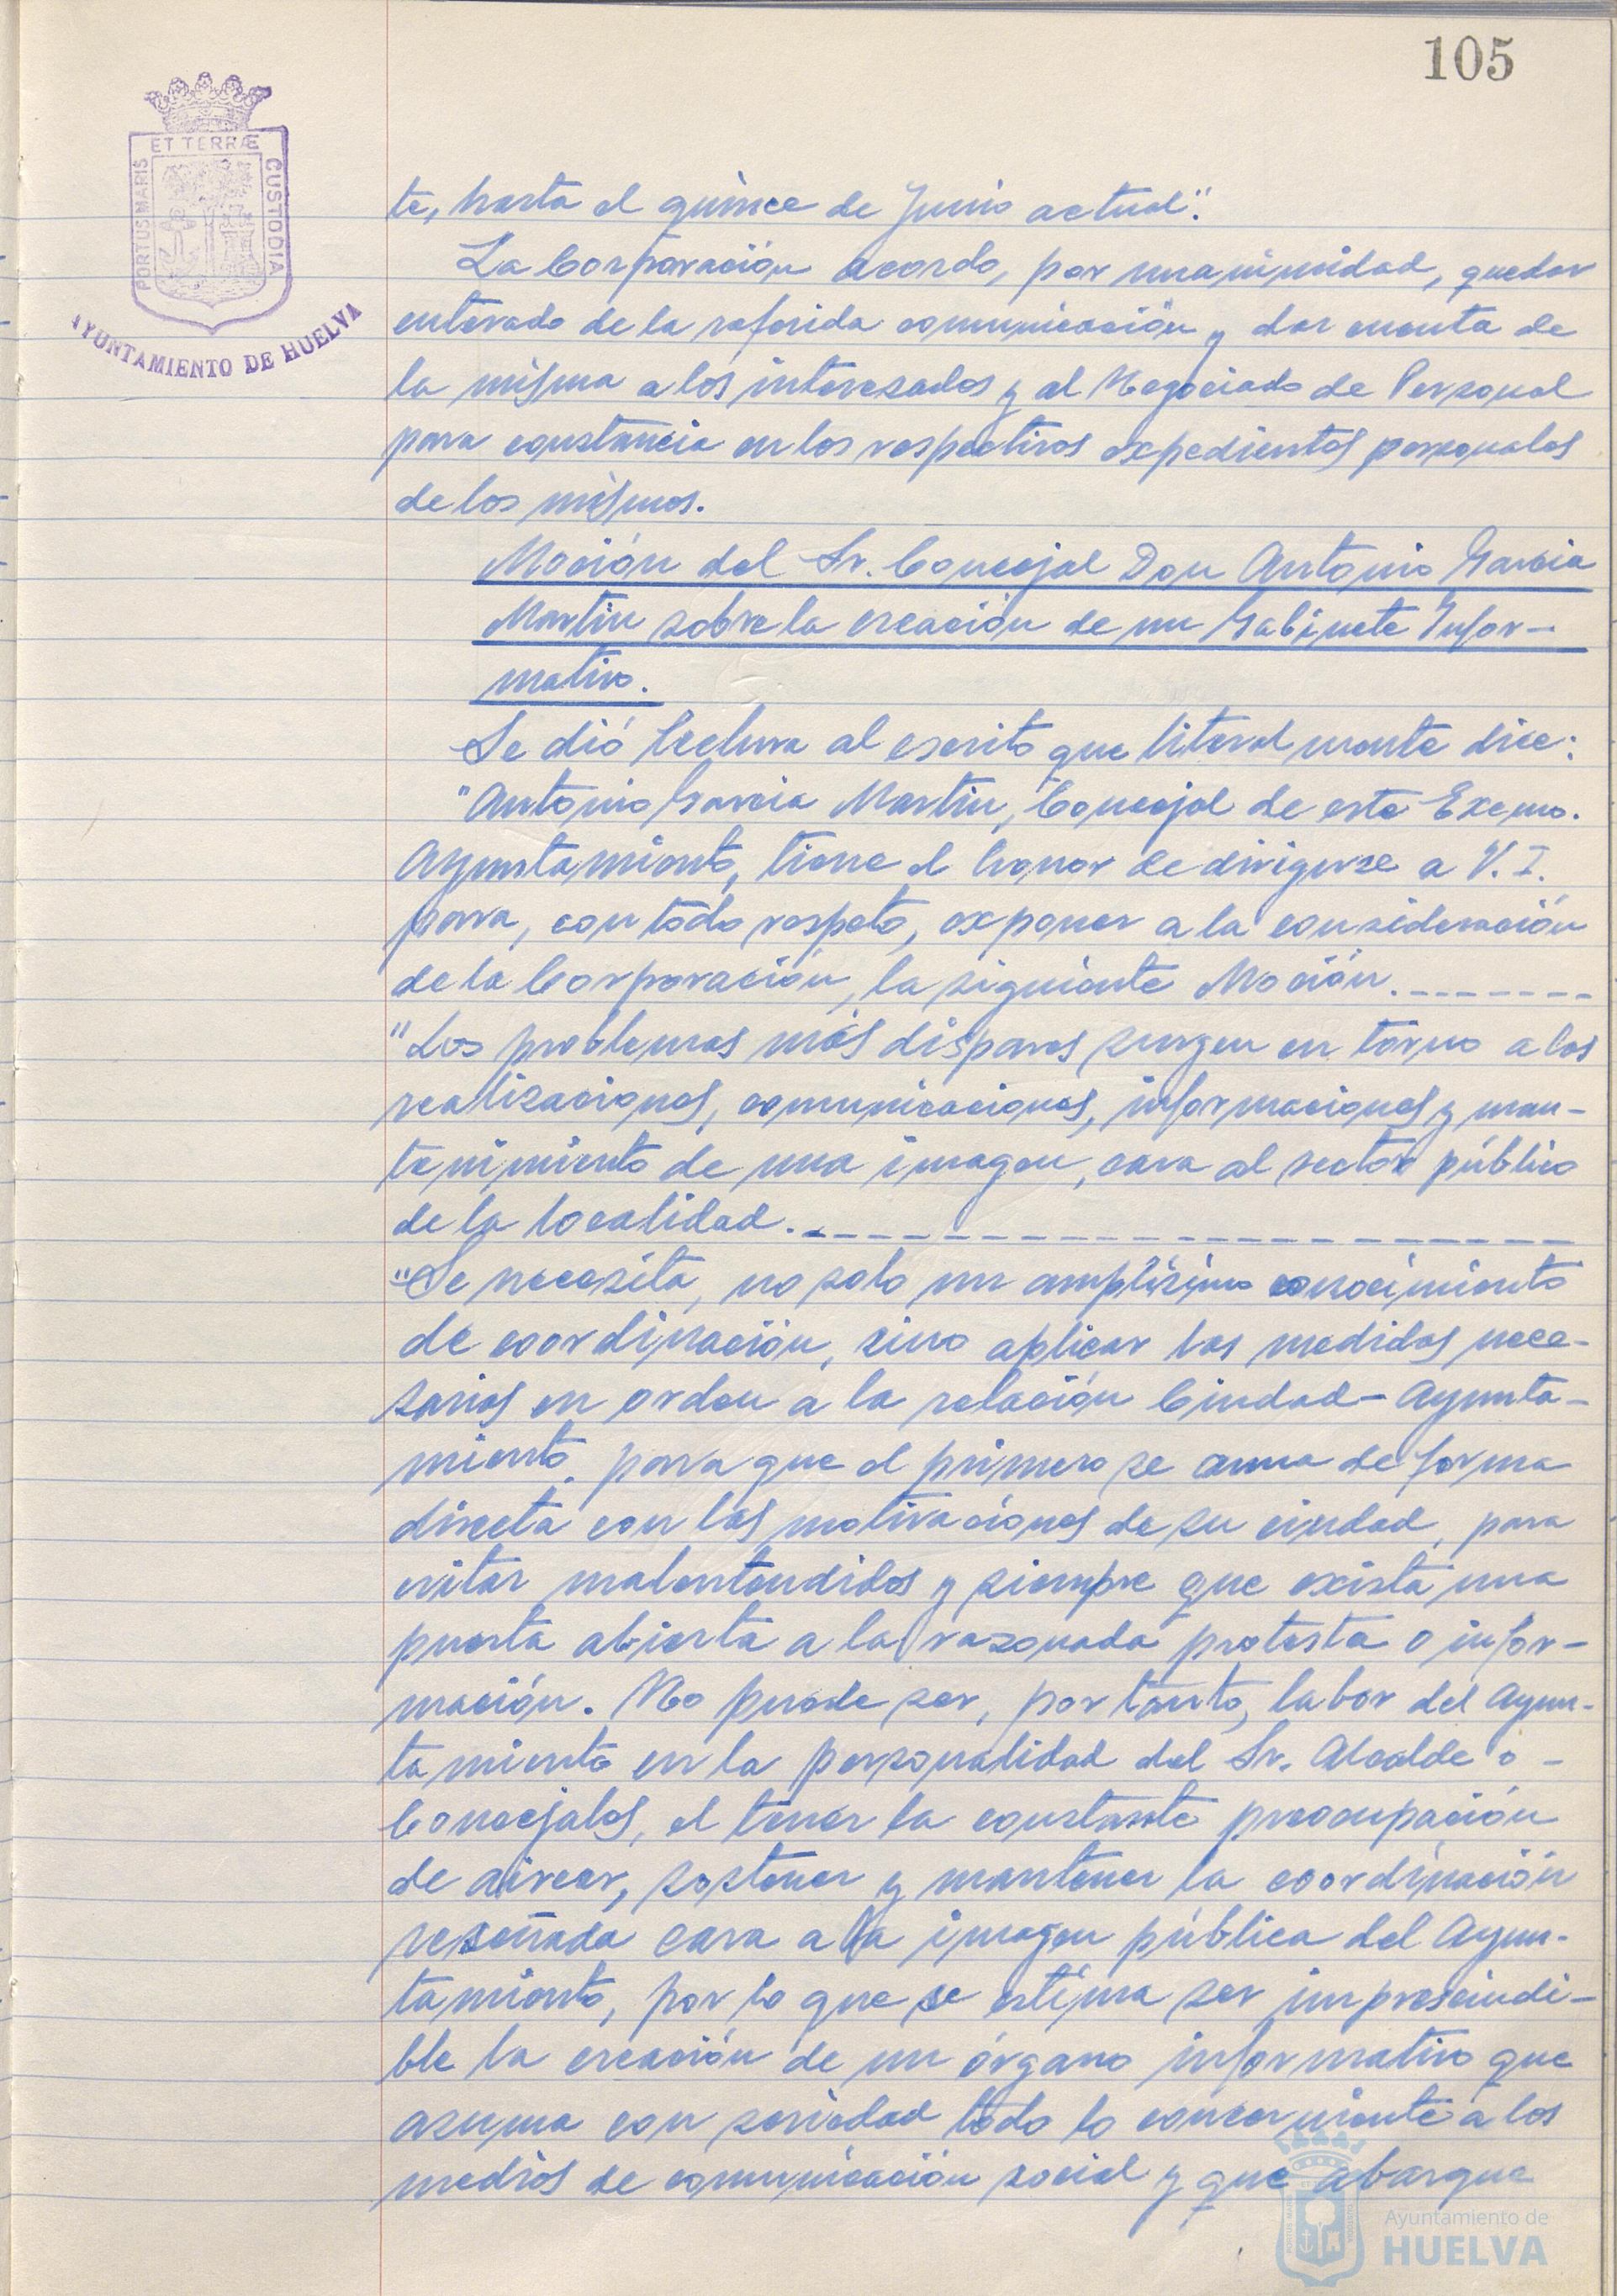 105
ET TERRÆ
PORTUS MARIS
CUSTODIA
AYUNTAMIENTO DE HUELVA
te, hasta el quince de Junio actual".
La Corporación acordo, por unanimidad, quedar
enterado de la referida comunicación y dar cuenta de
la misma a los interesados y al Negociado de Personal
para constancia en los respectivos expedientes personales
de los mismos.
Moción del Sr. Concejal Don Antonio Garcia
Martin sobre la creación de un Gabinete Infor-
mativo.
Se dió lectura al escrito que literalmente dice:
"Antonio Garcia Martin, Concejal de este Excmo.
Ayuntamiento, tiene el honor de dirigirse a V. I.
para, con todo respeto, exponer a la consideración
de la Corporación, la siguiente Moción.--------
"Los problemas más dispares surgen en torno a las
realizaciones, comunicaciones, informaciones y man-
tenimiento de una imagen, cara al sector público
de la localidad.--------------------
"Se necesita, no solo un amplísimo conocimiento
de coordinación, sino aplicar las medidas nece-
sarias en orden a la relación Ciudad-Ayunta-
miento, para que el primero se auna de forma
directa con las motivaciones de su ciudad, para
evitar malentendidos y siempre que exista una
puerta abierta a la razonada protesta o infor-
mación. No puede ser, por tanto, labor del Ayun-
tamiento en la personalidad del Sr. Alcalde o -
Concejales, el tener la constante preocupación
de airear, sostener y mantener la coordinación
reseñada cara a la imagen pública del Ayun-
tamiento, por lo que se estima ser imprescindi-
ble la creación de un órgano informativo que
asuma con seriedad todo lo concerniente a los
medios de comunicación social y que abarque
Ayuntamiento de
HUELVA